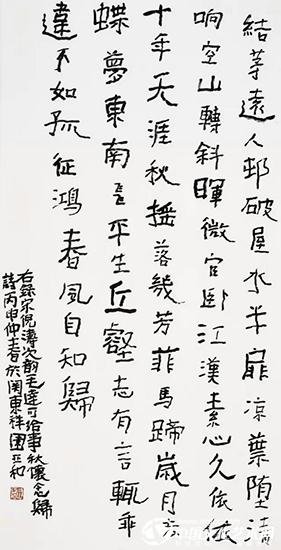 結茅遠人邨破屋水半扉凉葉堕清
响空山轉斜暉微官卧江漢素心久依依
十年天涯秋摇落幾芳菲馬蹄歲月
蝶夢東南平生丘壑志有言輒乖
違不如孤征鴻春風自知歸
右録宋倪濤次韵毛達可給事秋懷念歸
詩丙申仲春於関東祥園正和